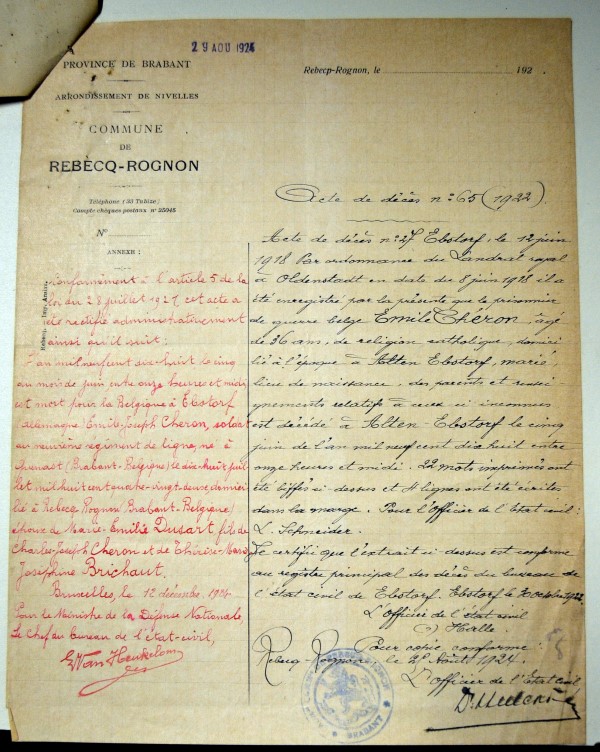 29 AOU 1924
PROVINCE DE BRABANT
ARRONDISSEMENT DE NIVELLES
COMMUNE
DE
REBÈCQ-ROGNON
Téléphone (30 Tubize)
Compte chèques postaux n° 25945
N°
ANNEXE :
Rebecq-Rognon, le 192
Conformément à l'article 5 de la
loi du 28 juillet 1921 cet acte a
été rectifié administrativement
ainsi qu'il suit :
L'an mil neuf cent dix-huit le cinq
du mois de juin entre onze heures et midi
est mort pour la Belgique à Ebstorf
(Allemagne) Emile-Joseph Cheron, soldat
au neuvième régiment de ligne, né à
(Brabant-Belgique) le dix-huit juil-
let mil huit cent quatre-vingt-deux, domici-
lié à Rebecq-Rognon (Brabant-Belgique)
époux de Marie-Emilie Dusart, fils de
Charles-Joseph Cheron et de Thérèse-Marie
Josephine Brichaut.
Bruxelles, le 12 décembre 1921
Pour le Ministre de la Défense Nationale,
Le Chef du bureau de l'état-civil,
Acte de décès n° 65 (1922)
Acte de décès n° 27 Ebstorf, le 12 juin
1918 Par ordonnance du Landrat royal
à Oldenstadt en date du 8 juin 1918 il a
été enregistré par la présente que le prisonnier
de guerre belge Emile Chéron, âgé
de 36 ans, de religion catholique, domici-
lié à l'époque à Alten Ebstorf, marié,
lieu de naissance, des parents et rensei-
gnements relatifs à ceux ci inconnus
est décédé à Alten-Ebstorf le cinq
juin de l'an mil neuf cent dix huit entre
onze heures et midi. 22 mots imprimés ont
été biffés ci-dessus et 4 lignes ont été écrites
dans la marge. Pour l'Officier de l'Etat civil :
L. Schneider.
Je certifie que l'extrait ci dessus est conforme
au registre principal des décès du bureau de
l'état civil de Ebstorf. Ebstorf le octobre 1922
L'Officier de l'état civil
Halle.
Pour copie conforme :
Rebecq-Rognon, le 28 Août 1924.
L'officier de l'Etat civil
BRABANT